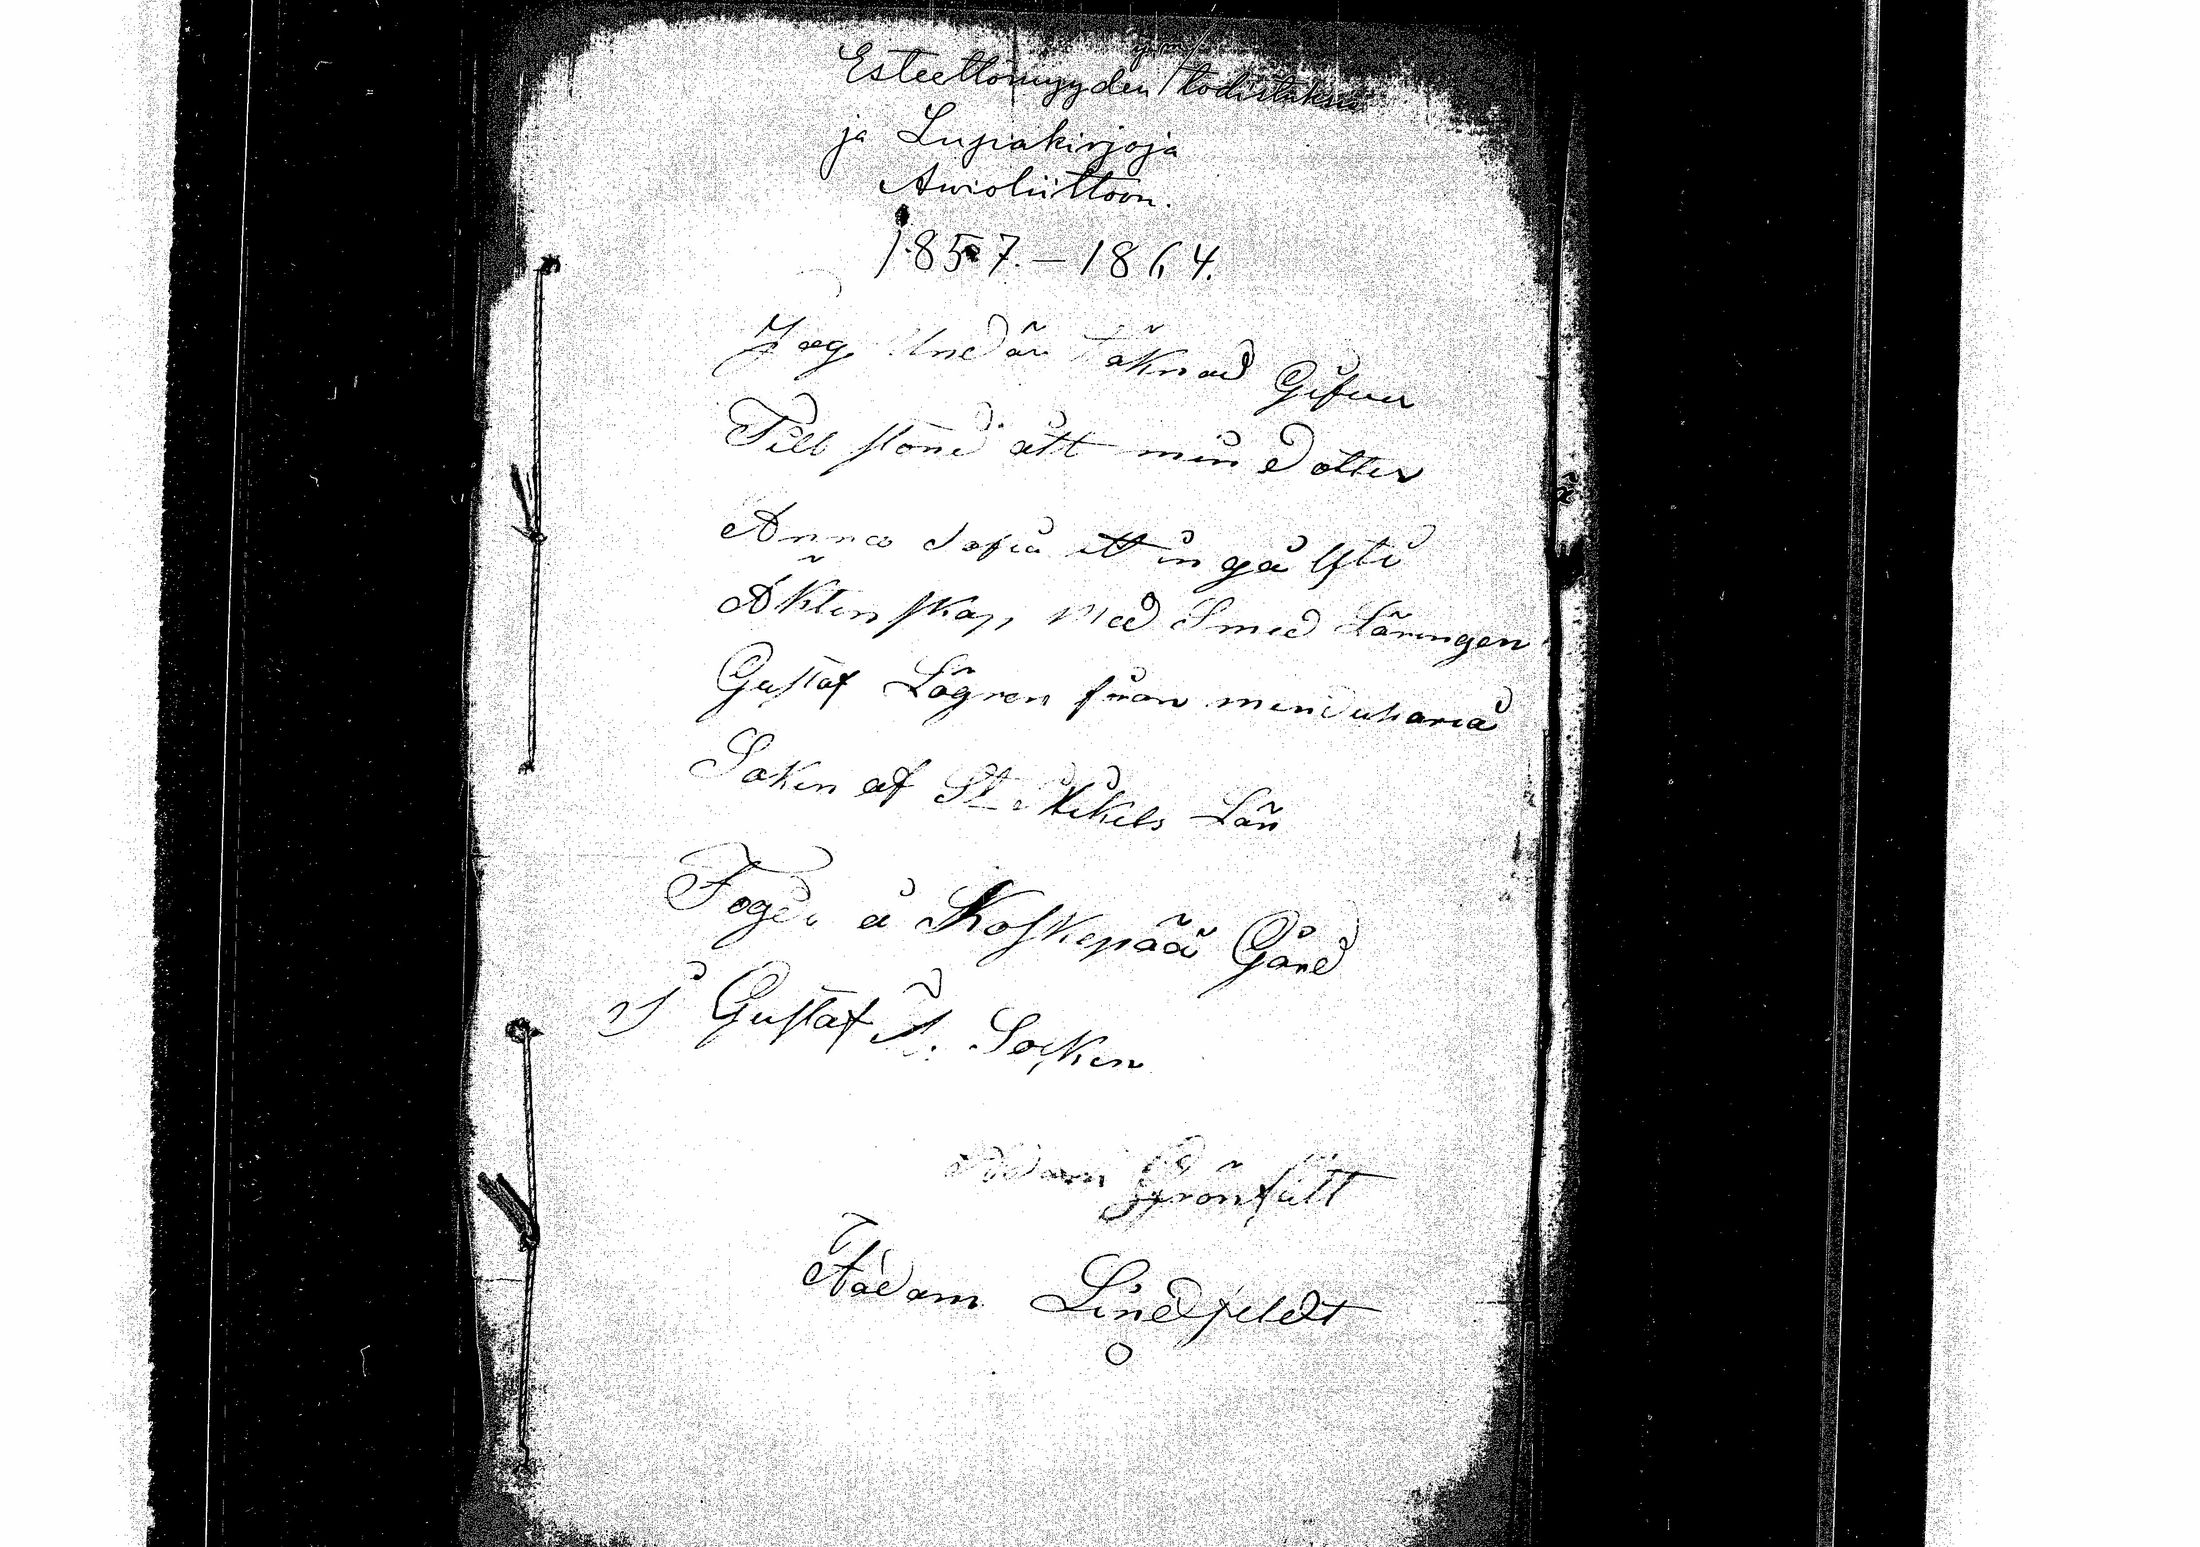 Esteettömyyden todistuksia
ja Lupakirjoja
Awioliittoon.
1857.–1864.
Jag Undär täknad Gifuer
Till stånd att min dotter
Anna Sofia att ingå
Äktenskap Med Smed Läringen
Gustaf Lögren från
Soken af St Mikels Län
å Koskepää Gård
I Gustaf A. Socken
Adam Grönfält
Aadam Lindfeldt